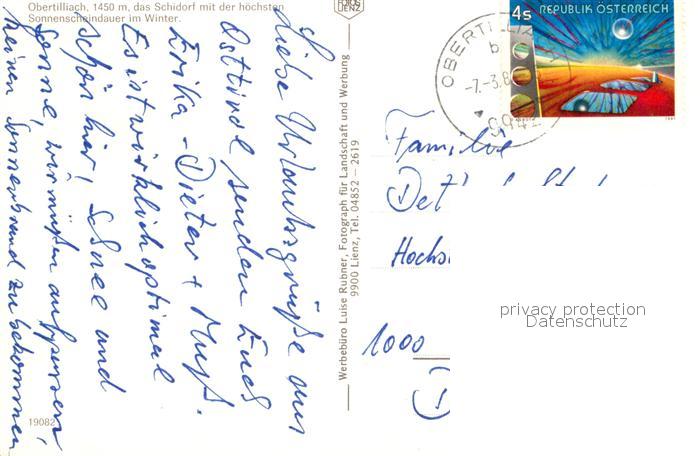 Obertilliach, 1450 m, das Schidorf mit der höchsten
Sonnenscheindauer im Winter.
Liebe Urlaubsgrüße aus
Osttirol senden Euch
Erika - Dieter +
Es ist wirklich optimal
schön hier, Schnee und
Sonne, wir müßen aufpassen,
keinen Sonnenbrand zu bekommen
19082
FOTOS
LIENZ
Werbebüro Luise Rubner, Fotograph für Landschaft und Werbung
9900 Lienz, Tel. 04852 – 2619
4s REPUBLIK ÖSTERREICH
b
-7.-3.8
Familie
Det
1000
privacy protection
Datenschutz